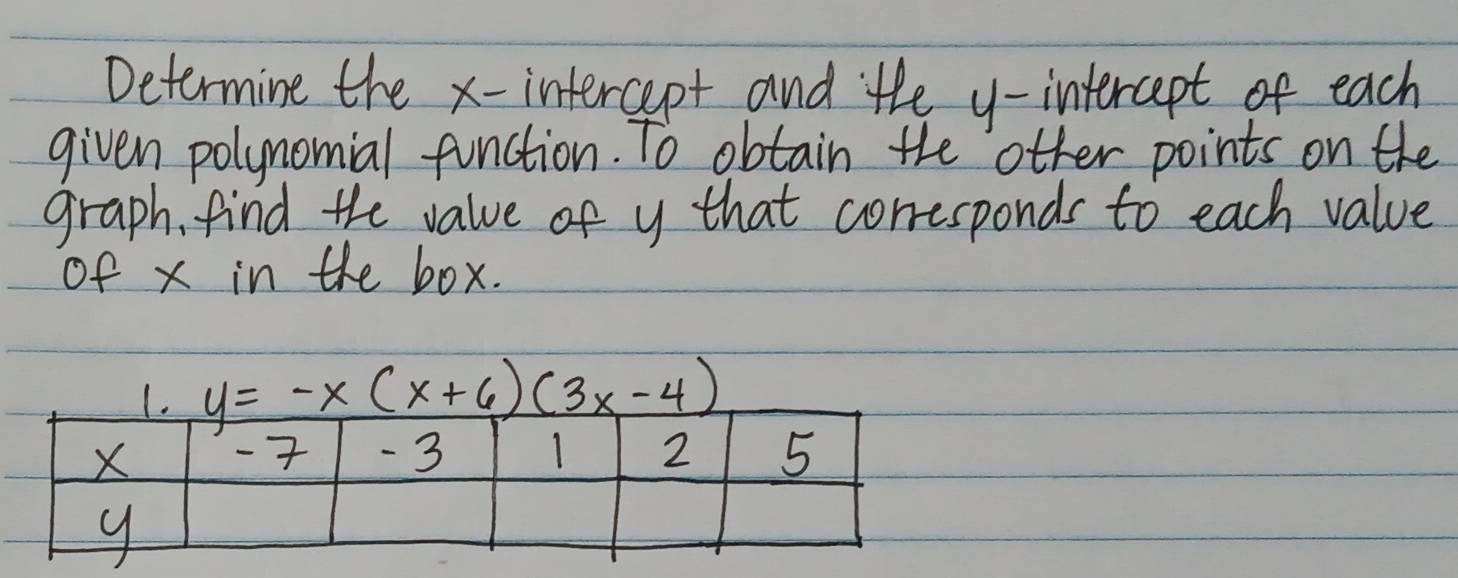 Determine the x-intercept and the y-intercept of each
given polynomial function. To obtain the other points on the
graph, find the value of y that corresponds to each value
of x in the box.
1. y= -x (x+6)(3x-4)
x -7 -3 1 2 5
y